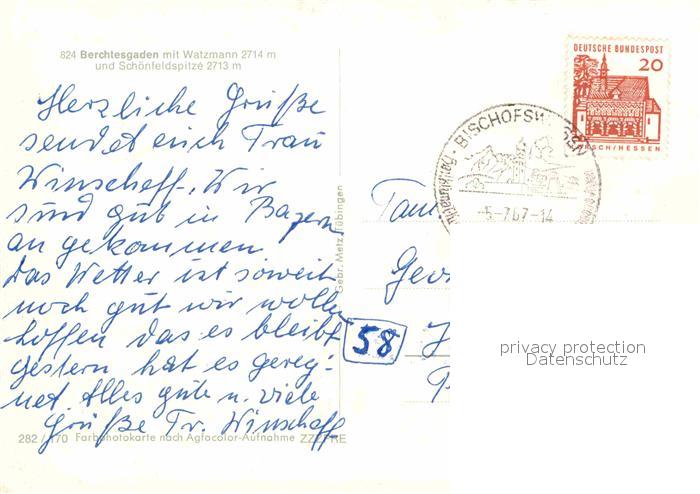 824 Berchtesgaden mit Watzmann 2714 m
und Schönfeldspitze 2713 m
Herzliche Grüße
sendet euch Frau
Winscheff. Wir
sind gut in Bayern
an gekommen
das Wetter ist soweit
noch gut wir wollen
hoffen das es bleibt
gestern hat es gereg-
net Alles gute u. viele
Grüße Fr. Winscheff
282 / 170 Farbphotokarte nach Agfacolor-Aufnahme
Gebr. Metz, Tübingen
DEUTSCHE BUNDESPOST
20
LORSCH/HESSEN
BISCHOFSWIESEN
-5-7.67-14
Fam
58
privacy protection
Datenschutz